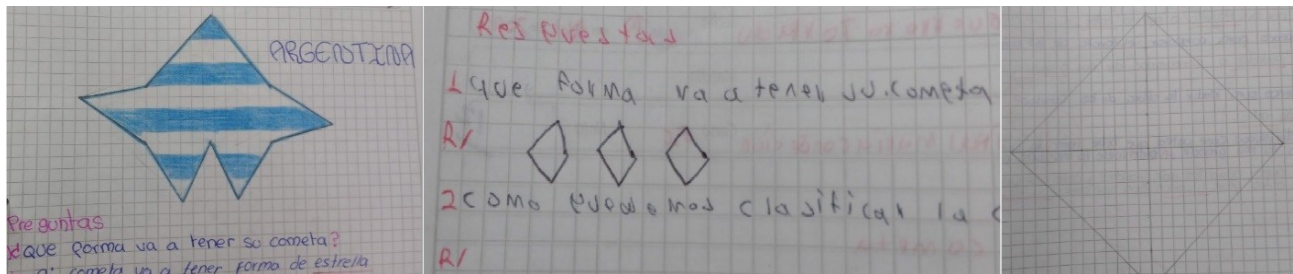 ARGENTINA
Preguntas
que forma va a tener su cometa?
cometa va a tener forma de estrella
Respuestas
1 que forma va a tener su.cometa
R/
2 como puedemos clasificar la c
R/